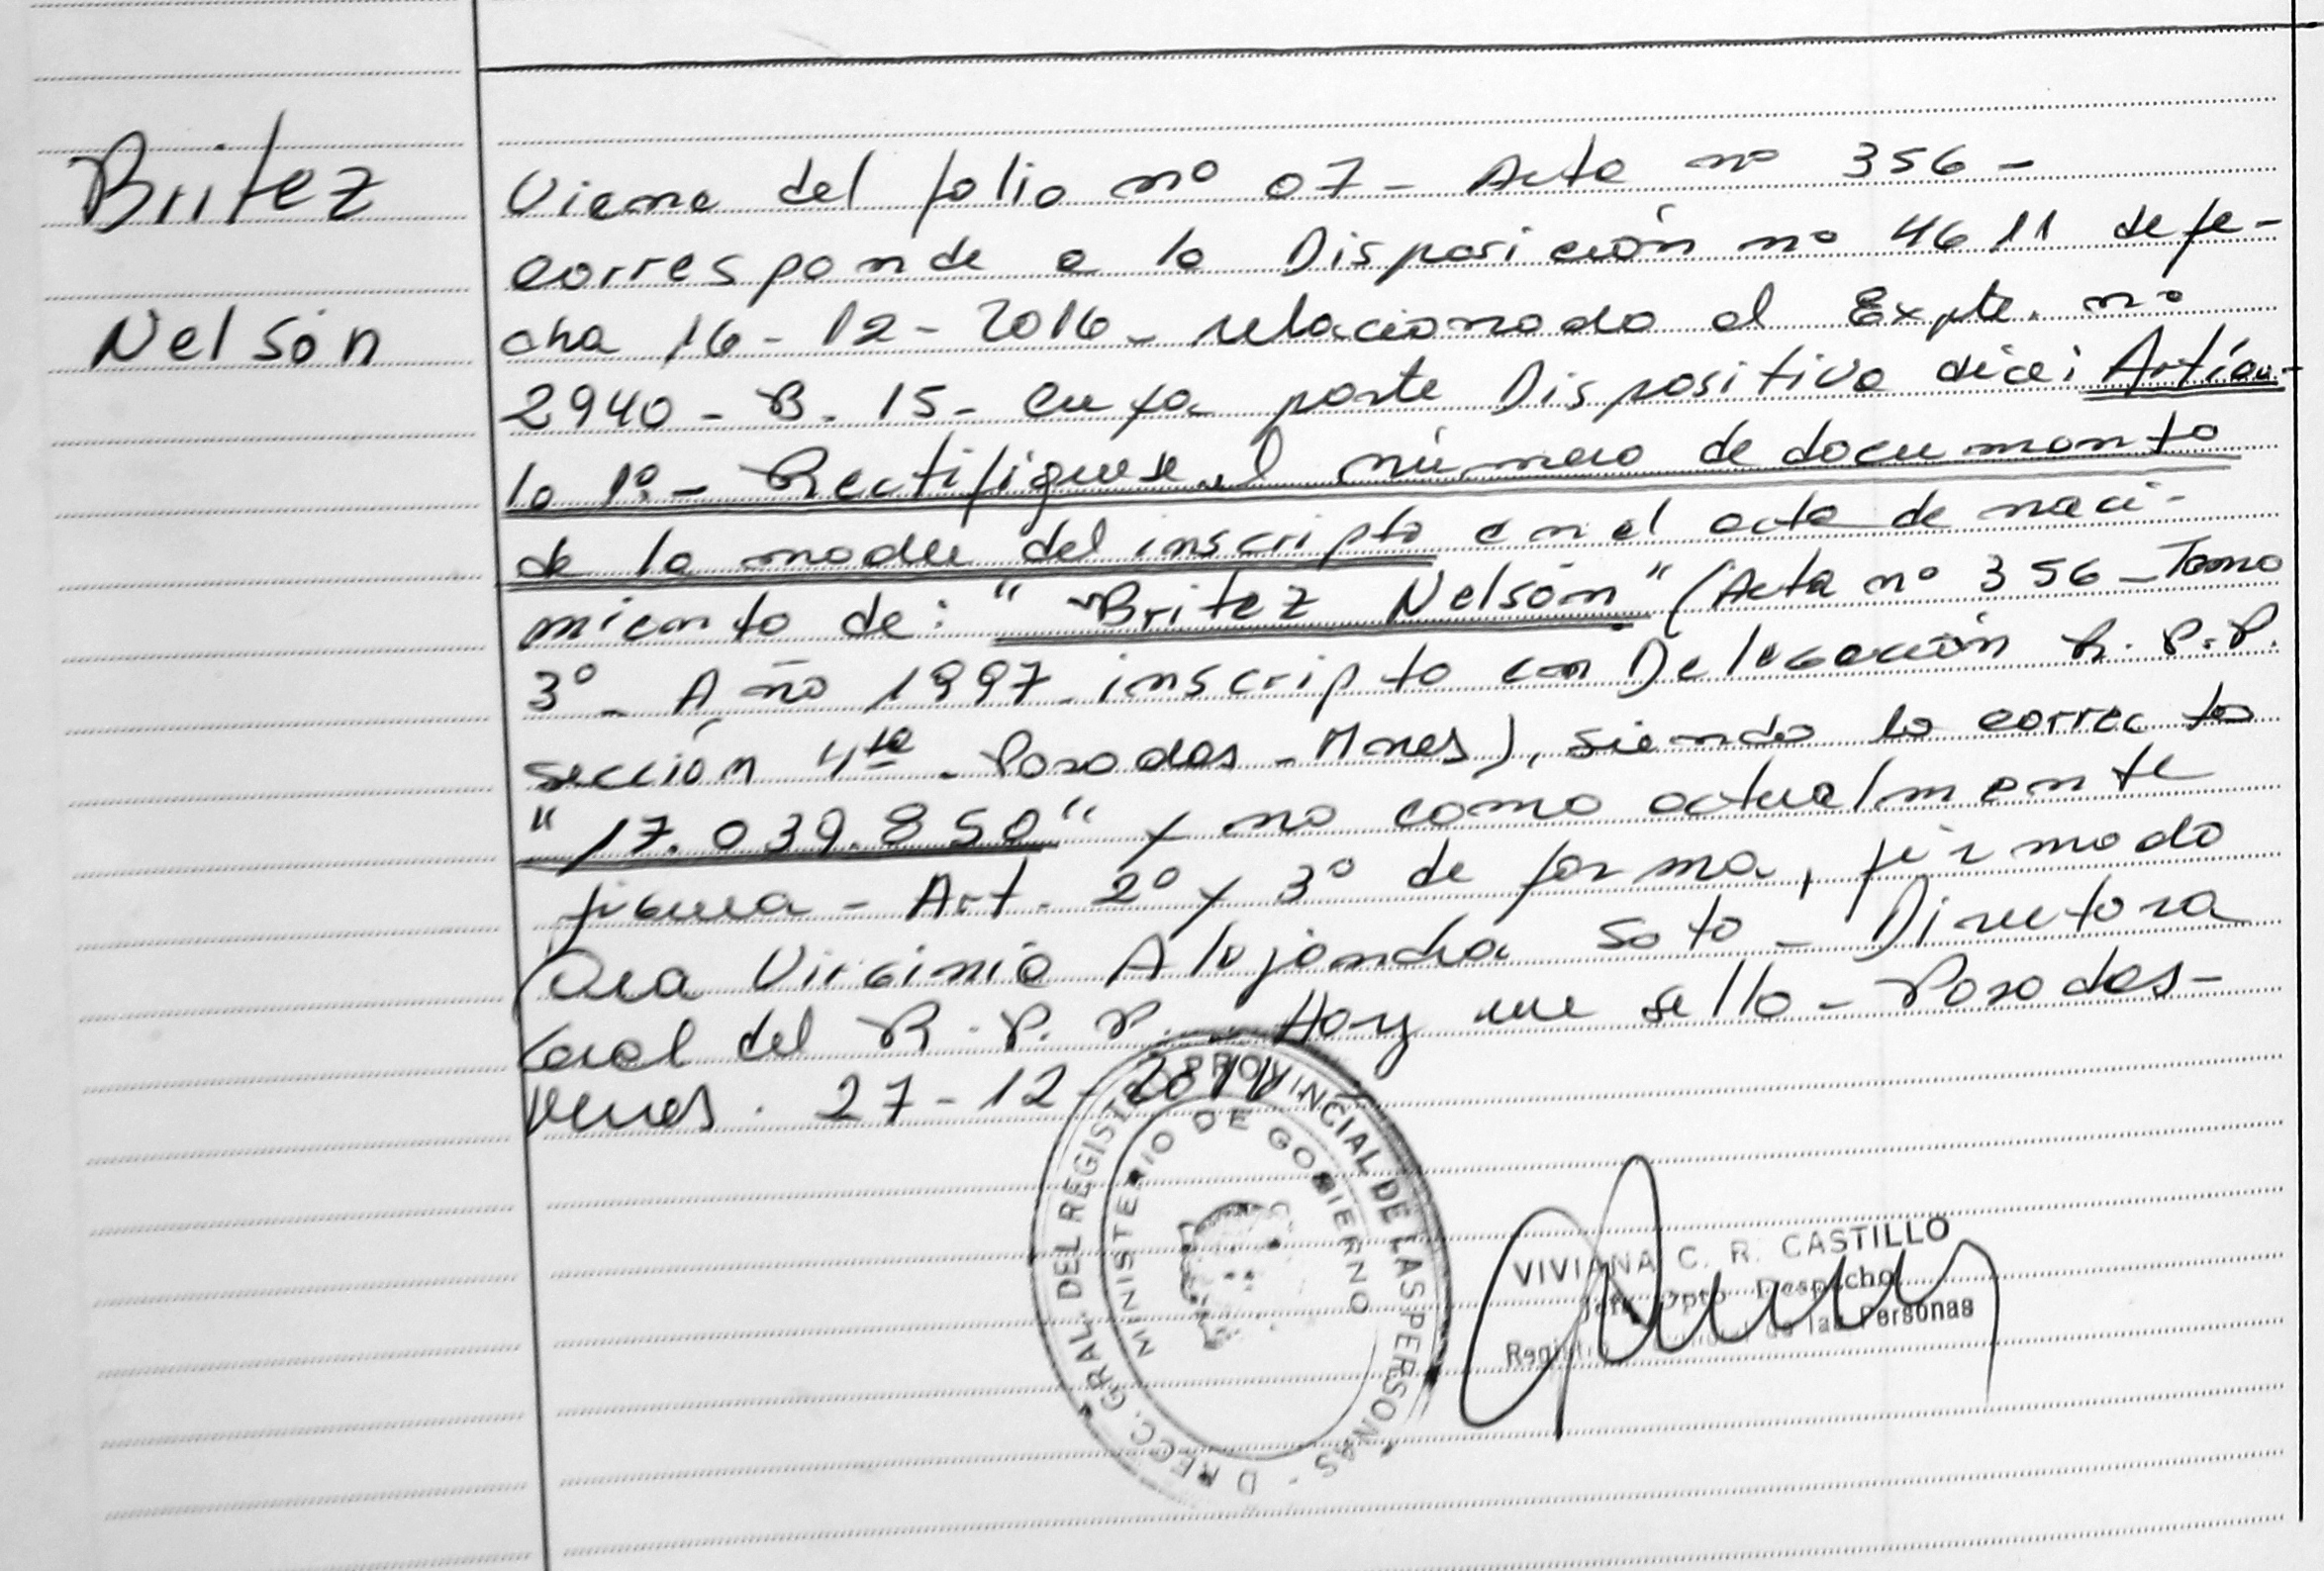 Britez
Nelsón
Viene del folio nº 07 - Acta nº 356 -
corresponde a la Disposición nº 4611 de fe-
cha 16 - 12 - 2016 - relacionado al Expte. nº
2940 - B - 15 - Cuya parte Dispositiva dice: Artícu-
lo 1º - Rectifiquese el número de documento
de la madre del inscripto en el acta de naci-
miento de: " Britez Nelsón " (Acta nº 356 - Tomo
3º - Año 1997 - inscripto en Delegación R. P. P.
sección 4ta - Posadas - Mnes), siendo lo correcto
" 17.039.850 " y no como actualmente
figura - Art. 2º y 3º de forma, firmado
Dra Virginia Alejandra Soto - Directora
Gral del R. P. P. - Hay un sello - Posadas -
Mnes. 27 - 12 -
DIRECC. GRAL. DEL REGISTRO PROVINCIAL DE LAS PERSONAS -
MINISTERIO DE GOBIERNO
VIVIANA C. R. CASTILLO
Jefe Dpto Despacho
Registro de las Personas